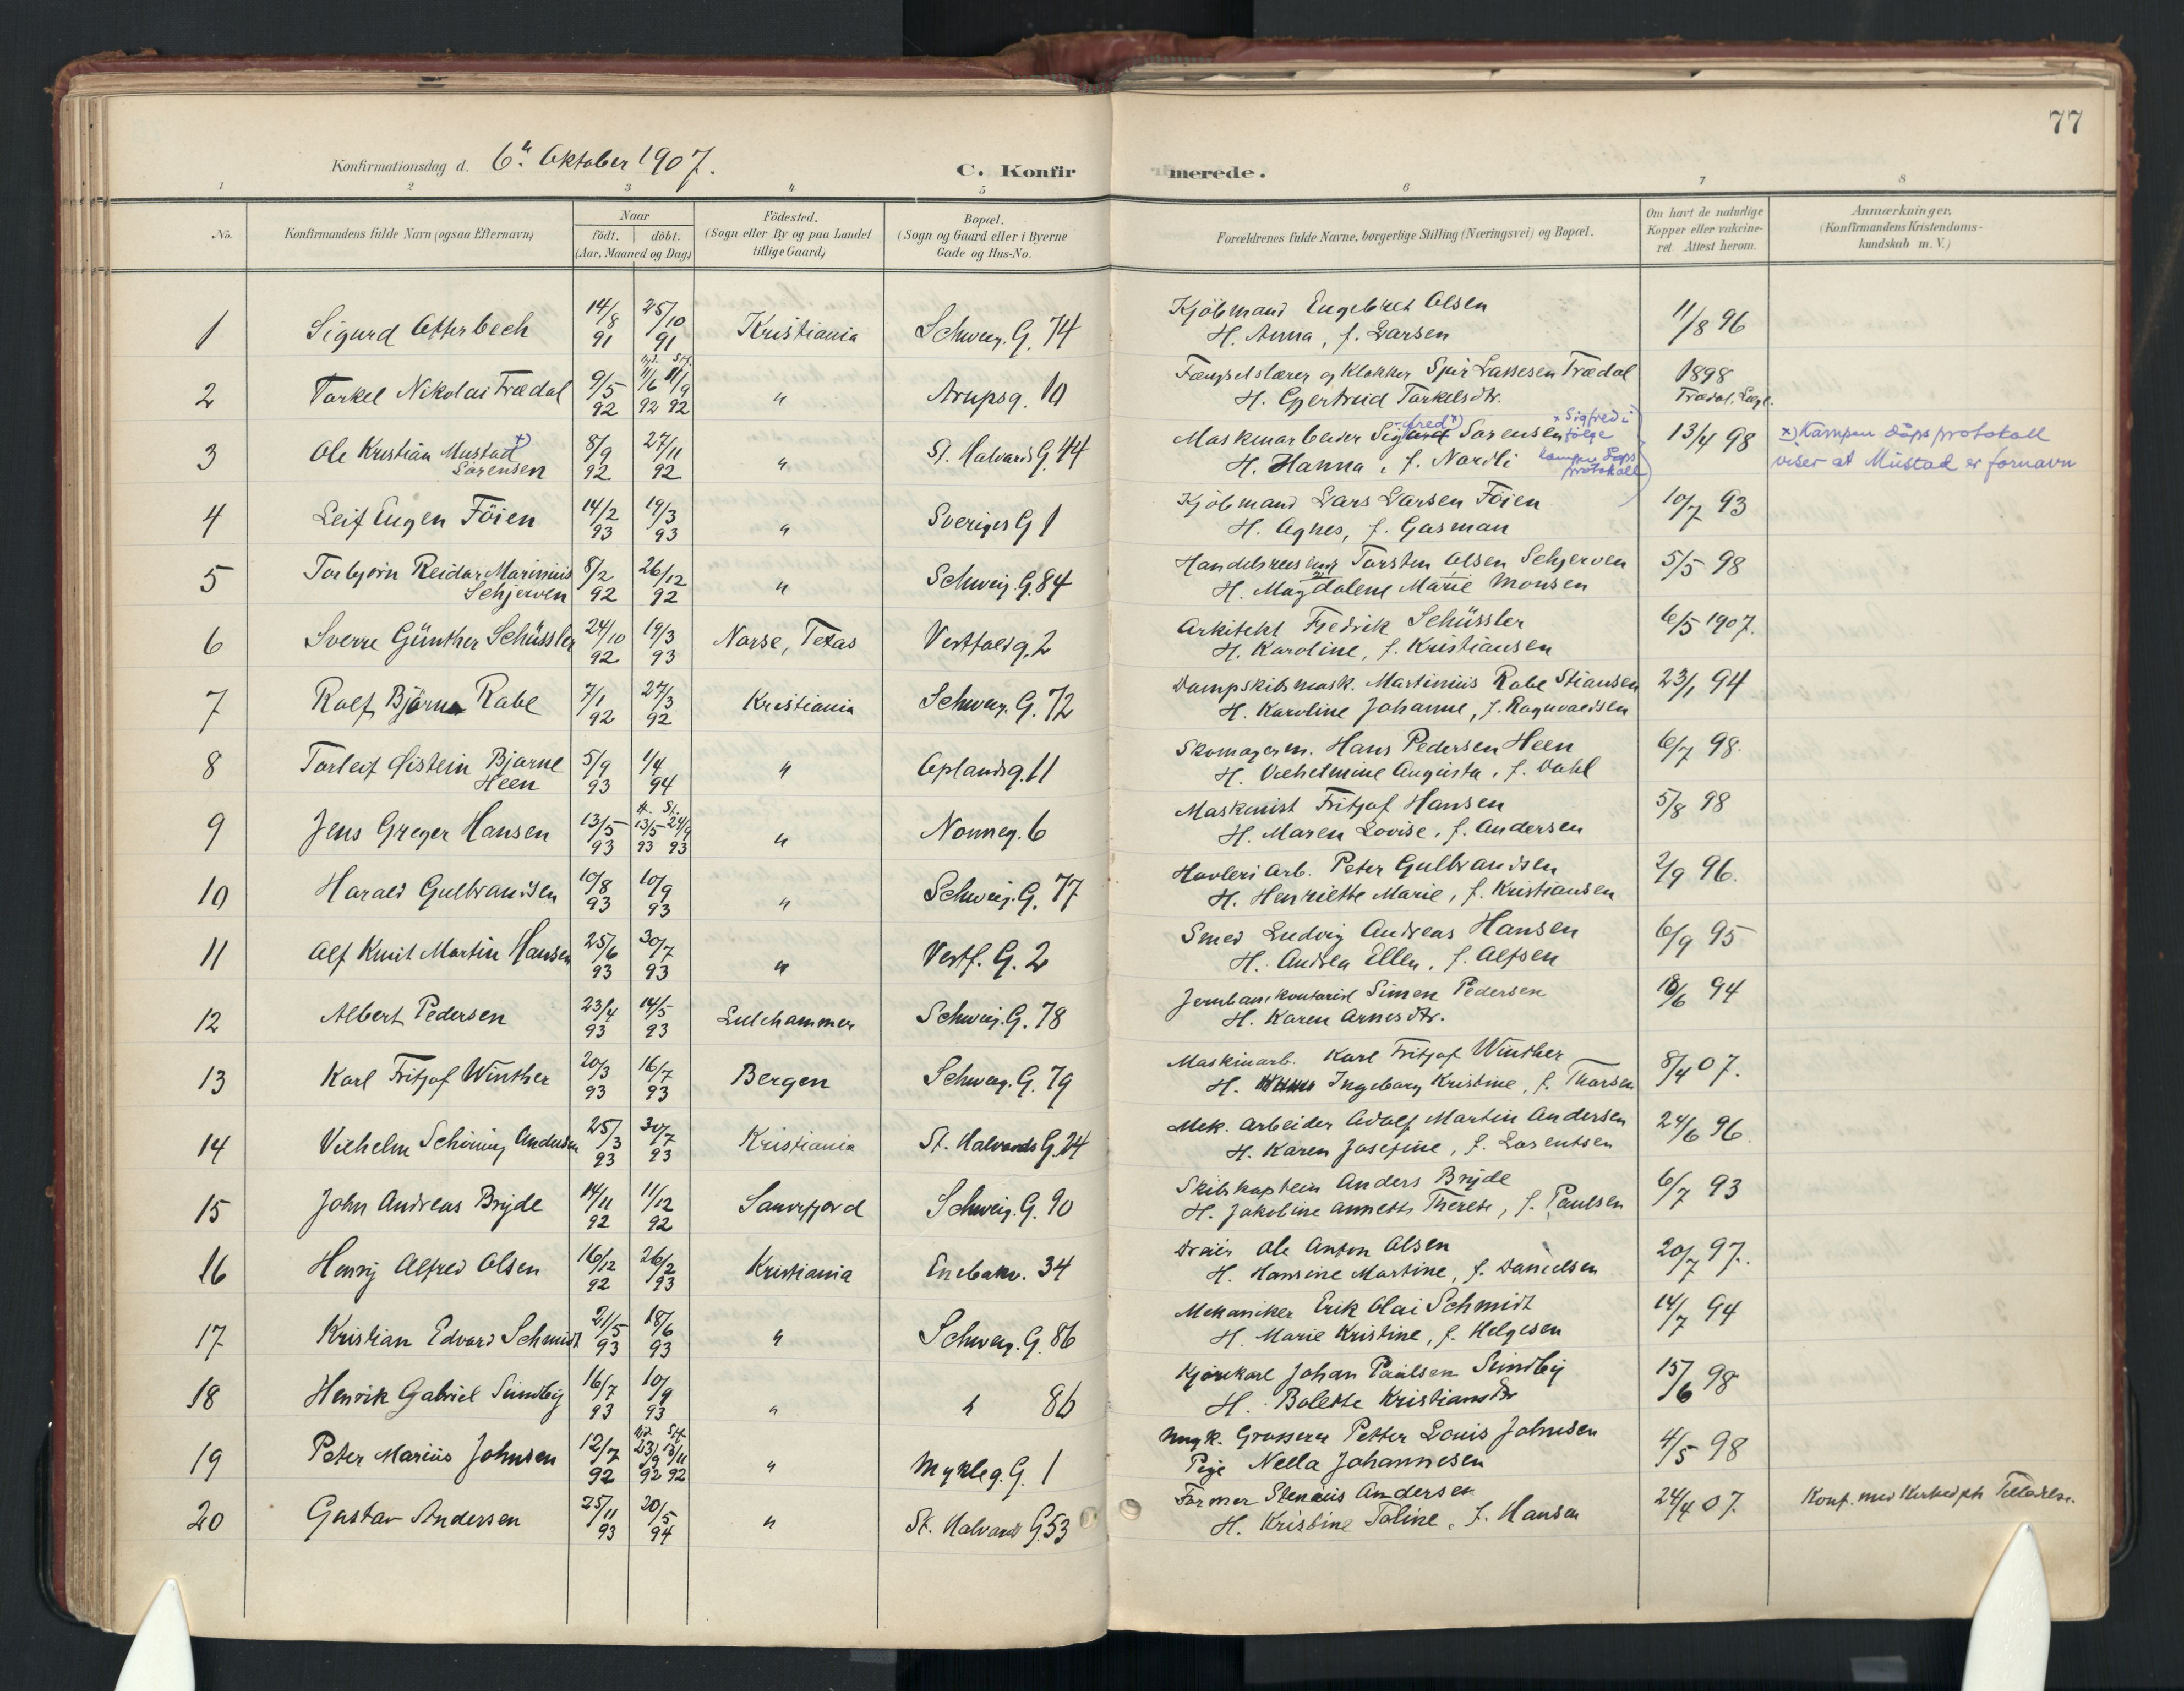 77
Konfirmationsdag d. 6te Oktober 1907.
C. Konfirmerede.
1 2 3 4 5 6 7 8
No.
Konfirmandens fulde Navn (ogsaa Efternavn)
Naar
födt. döbt.
(Aar, Maaned og Dag)
Födested.
(Sogn eller By og paa Landet
tillige Gaard)
Bopæl.
(Sogn og Gaard eller i Byerne
Gade og Hus-No.
Forældrenes fulde Navne, borgerlige Stilling (Næringsvei) og Bopæl.
Om havt de naturlige
Kopper eller vakcine-
ret. Attest herom.
Anmærkninger.
(Konfirmandens Kristendoms-
kundskab m. V.)
1 Sigurd Otterbech 14/8 91 25/10 91 Kristiania Schweig. G. 74 Kjöbmand Engebret Olsen 11/8 96
H. Anna, f. Larsen
2 Torkel Nikolai Trædal 9/5 92 11/6 92 11/9 92 " Arupsg. 10 Fængselslærer og Klokker Sjur Lassesen Trædal 1898
H. Gjertrud Torkelsdtr. Trædal. Læge.
3 Ole Kristian Mustad x) 8/9 92 27/11 92 " St. Halvards G. 44 Maskinarbeider Sigurd Sørensen 13/4 98 x) Kampen dåpsprotokoll
Sørensen H. Hanna, f. Nordli viser at Mustad er fornavn
-fred x)
x Sigfred i
følge
Kampen Dåps
protokoll
4 Leif Eugen Föien 14/2 93 19/3 93 " Sveriges G 1 Kjöbmand Lars Larsen Föien 10/7 93
H. Agnes, f. Gasman
5 Torbjørn Reidar Marinius 8/2 92 26/12 92 " Schweig. G. 84 Handelsreisende Torsten Olsen Schjerven 5/5 98
Schjerven H. Magdalene Marie Monsen
6 Sverre Günther Schüssler 24/10 92 19/3 93 Norse, Texas Vestfoldg. 2 Arkitekt Fredrik Schüssler 6/5 1907.
H. Karoline, f. Kristiansen
7 Rolf Bjarne Rabe 7/1 92 27/3 92 Kristiania Schweig. G. 72 Dampskibsmask. Martinius Rabe Stiansen 23/1 94
H. Karoline Johanne, f. Ragnvaldsen
8 Torleif Øistein Bjarne 5/9 93 1/4 94 " Oplandsg. 11 Skomagerm. Hans Pedersen Heen 6/7 98.
Heen H. Vilhelmine Augusta, f. Dahl
9 Jens Greger Hansen 13/5 93 13/5 93 24/9 93 " Nonneg. 6 Maskinist Fritjof Hansen 5/8 98
H. Maren Lovise, f. Andersen
10 Harald Gulbrandsen 10/8 93 10/9 93 " Schweig. G. 77 Høvleri Arb. Peter Gulbrandsen 2/9 96.
H. Henriette Marie, f. Kristiansen
11 Alf Knut Martin Hansen 25/6 93 30/7 93 " Vestf. G. 2 Smed Ludvig Andreas Hansen 6/9 95
H. Andrea Ellen, f. Alfsen
12 Albert Pedersen 23/4 93 14/5 93 Lillehammer Schweig. G. 78 Jernbanekontorist Simen Pedersen 94
H. Karen Arnesdtr.
13 Karl Fritjof Winther 20/3 93 16/7 93 Bergen Schweig. G. 79 Maskinarb. Karl Fritjof Winther 8/4 07.
H. Ingeborg Kristine, f. Thorsen
14 Vilhelm Schöning Andersen 25/3 93 30/7 93 Kristiania St. Halvards G. 24 Mek. Arbeider Adolf Martin Andersen 24/6 96.
H. Karen Josefine, f. Lorentsen
15 John Andreas Bryde 14/11 92 11/12 92 Sandefjord Schweig. G. 90 Skibskaptein Anders Bryde 6/7 93
H. Jakobine Annette Therese, f. Paulsen
16 Henry Alfred Olsen 16/12 92 26/2 93 Kristiania Enebakv. 34 Dreier Ole Anton Olsen 20/7 97.
H. Hansine Martine, f. Danielsen
17 Kristian Edvard Schmidt 21/5 93 18/6 93 " Schweig. G. 86 Mekaniker Erik Olai Schmidt 14/7 94
H. Marie Kristine, f. Helgesen
18 Henrik Gabriel Sundby 16/7 93 10/9 93 " " 86 Kjørekarl Johan Paulsen Sundby 15/6 98
H. Bolette Kristiansdtr
19 Peter Marius Johnsen 12/7 92 23/9 92 13/11 92 " Mykleg. G. 1 Ungk. Grosserer Petter Louis Johnsen 4/5 98
Pige Nella Johannesen
20 Gustav Andersen 25/11 93 20/5 94 " St. Halvards G. 53 Former Stenius Andersen 24/4 07.
H. Kristine Toline, f. Hansen